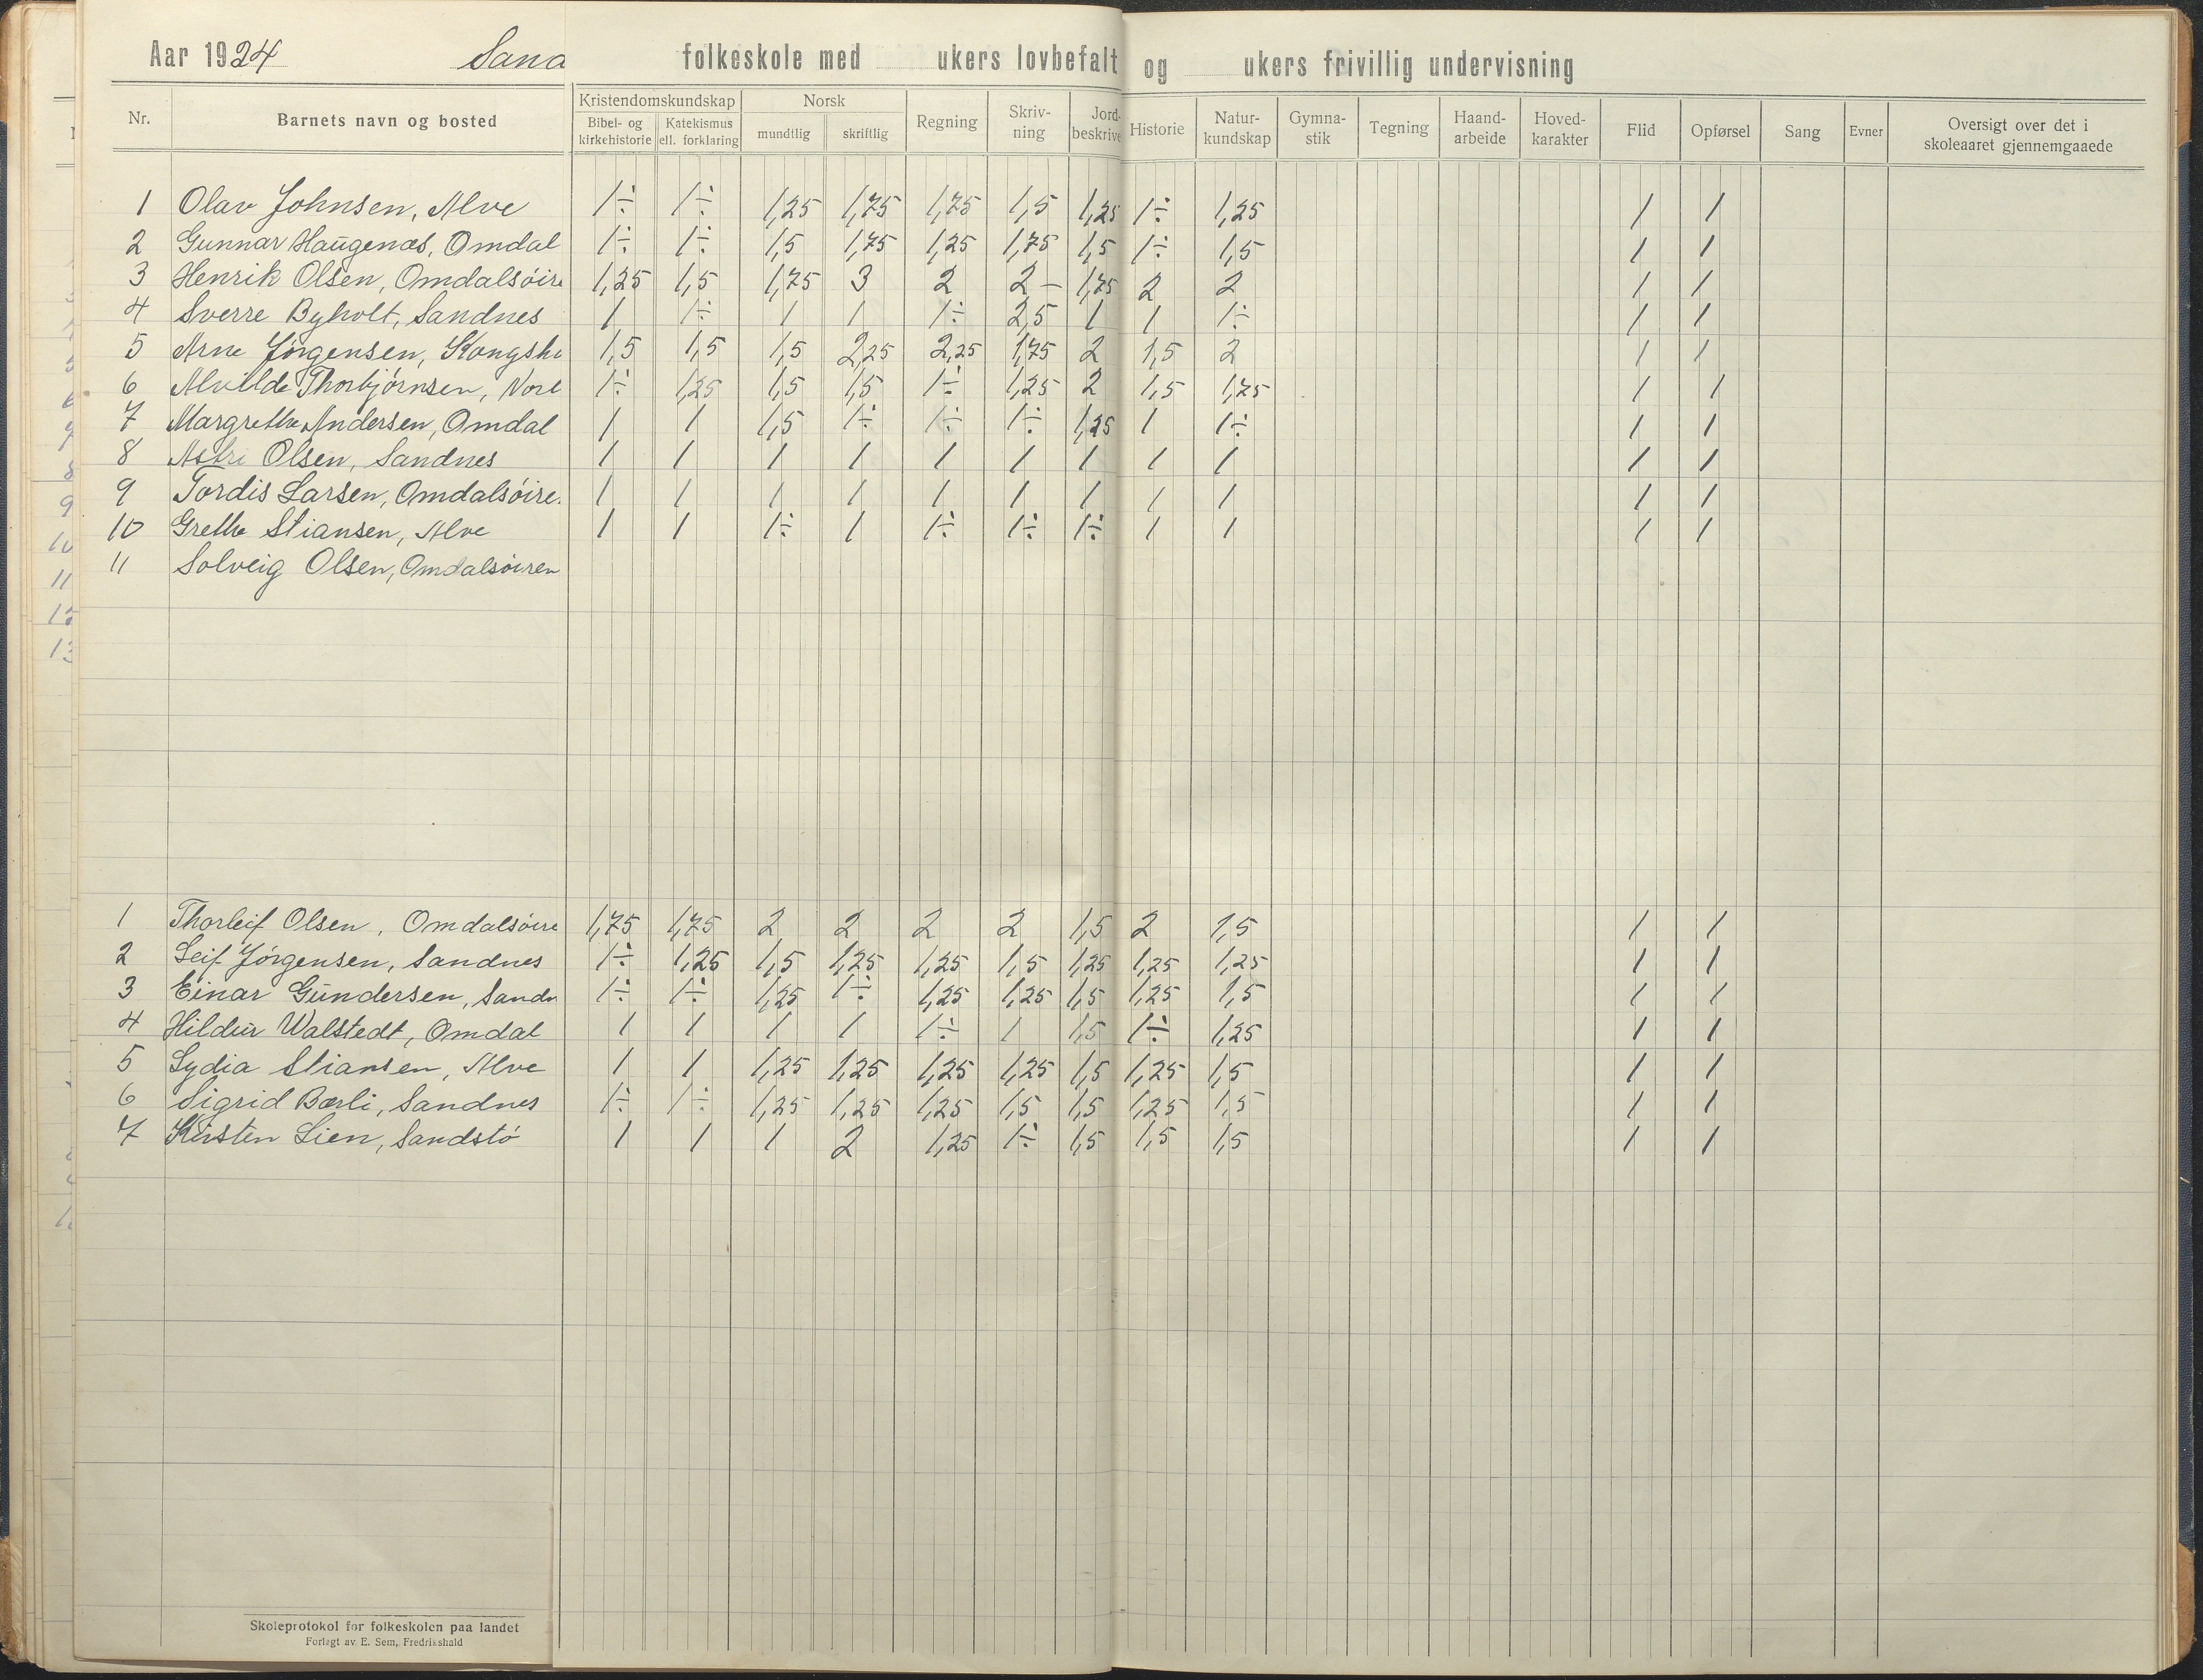 Aar 1924 Sand folkeskole med ukers lovbefalt og ukers frivillig undervisning
Nr. Barnets navn og bosted Kristendomskundskap Bibel- og kirkehistorie Katekismus ell. forklaring Norsk mundtlig skriftlig Regning Skriv-ning Jord-beskrive Historie Natur-kundskap Gymna-stik Tegning Haand-arbeide Hoved-karakter Flid Opførsel Sang Evner Oversigt over det i skoleaaret gjennemgaaede
1 Olav Johnsen, Alve 1÷ 1÷ 1,25 1,75 1,75 1,5 1,25 1÷ 1,25 1 1
2 Gunnar Haugenæs, Omdal 1÷ 1÷ 1,5 1,75 1,25 1,75 1,5 1÷ 1,5 1 1
3 Henrik Olsen, Omdalsöire 1,25 1,5 1,75 3 2 2 – 1,75 2 2 1 1
4 Sverre Byholt, Sandnes 1 1÷ 1 1 1÷ 2,5 1 1 1÷ 1 1
5 Arne Jörgensen, Kongsha 1,5 1,5 1,5 2,25 2,25 1,75 2 1,5 2 1 1
6 Alvilde Thorbjörnsen, 1÷ 1,25 1,5 1,5 1÷ 1,25 2 1,5 1,75 1 1
7 Margrethe Andersen, Omdal 1 1 1,5 1÷ 1÷ 1÷ 1,25 1 1÷ 1 1
8 Astri Olsen, Sandnes 1 1 1 1 1 1 1 1 1 1 1
9 Tordis Larsen, Omdalsöire. 1 1 1 1 1 1 1 1 1 1 1
10 Grethe Stiansen, Alve 1 1 1÷ 1 1÷ 1÷ 1÷ 1 1 1 1
11 Solveig Olsen, Omdalsöiren
1 Thorleif Olsen, Omdalsöire 1,75 1,75 2 2 2 2 1,5 2 1,5 1 1
2 Leif Jörgensen, Sandnes 1÷ 1,25 1,5 1,25 1,25 1,5 1,25 1,25 1,25 1 1
3 Einar Gundersen, Sandn 1÷ 1÷ 1,25 1÷ 1,25 1,25 1,5 1,25 1,5 1 1
4 Hildur Walstedt, Omdal 1 1 1 1 1÷ 1 1,5 1÷ 1,25 1 1
5 Lydia Stiansen, Alve 1 1 1,25 1,25 1,25 1,25 1,5 1,25 1,5 1 1
6 Sigrid Bærli, Sandnes 1÷ 1÷ 1,25 1,25 1,25 1,5 1,5 1,25 1,5 1 1
7 Kirsten Lien, Sandstö 1 1 1 2 1,25 1÷ 1,5 1,5 1,5 1 1
Skoleprotokol for folkeskolen paa landet
Forlagt av E. Sem, Fredrikshald